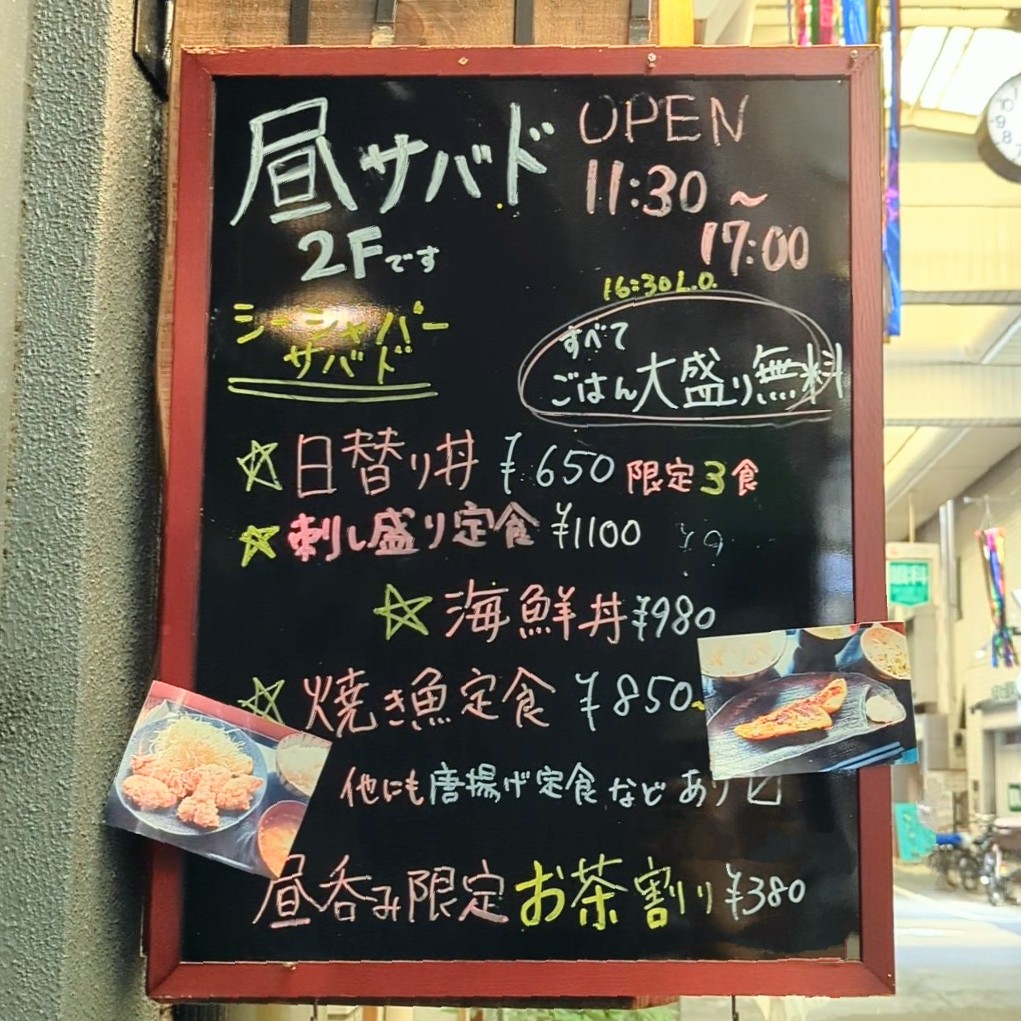 昼サバド
OPEN
11:30～
17:00
2Fです
16:30L.O.
シーシャバー
サバド
すべて
ごはん大盛り無料
☆日替り丼 ¥650 限定3食
☆刺し盛り定食 ¥1100
☆海鮮丼 ¥980
☆焼き魚定食 ¥850~
他にも唐揚げ定食などあり〼
昼呑み限定お茶割り ¥380